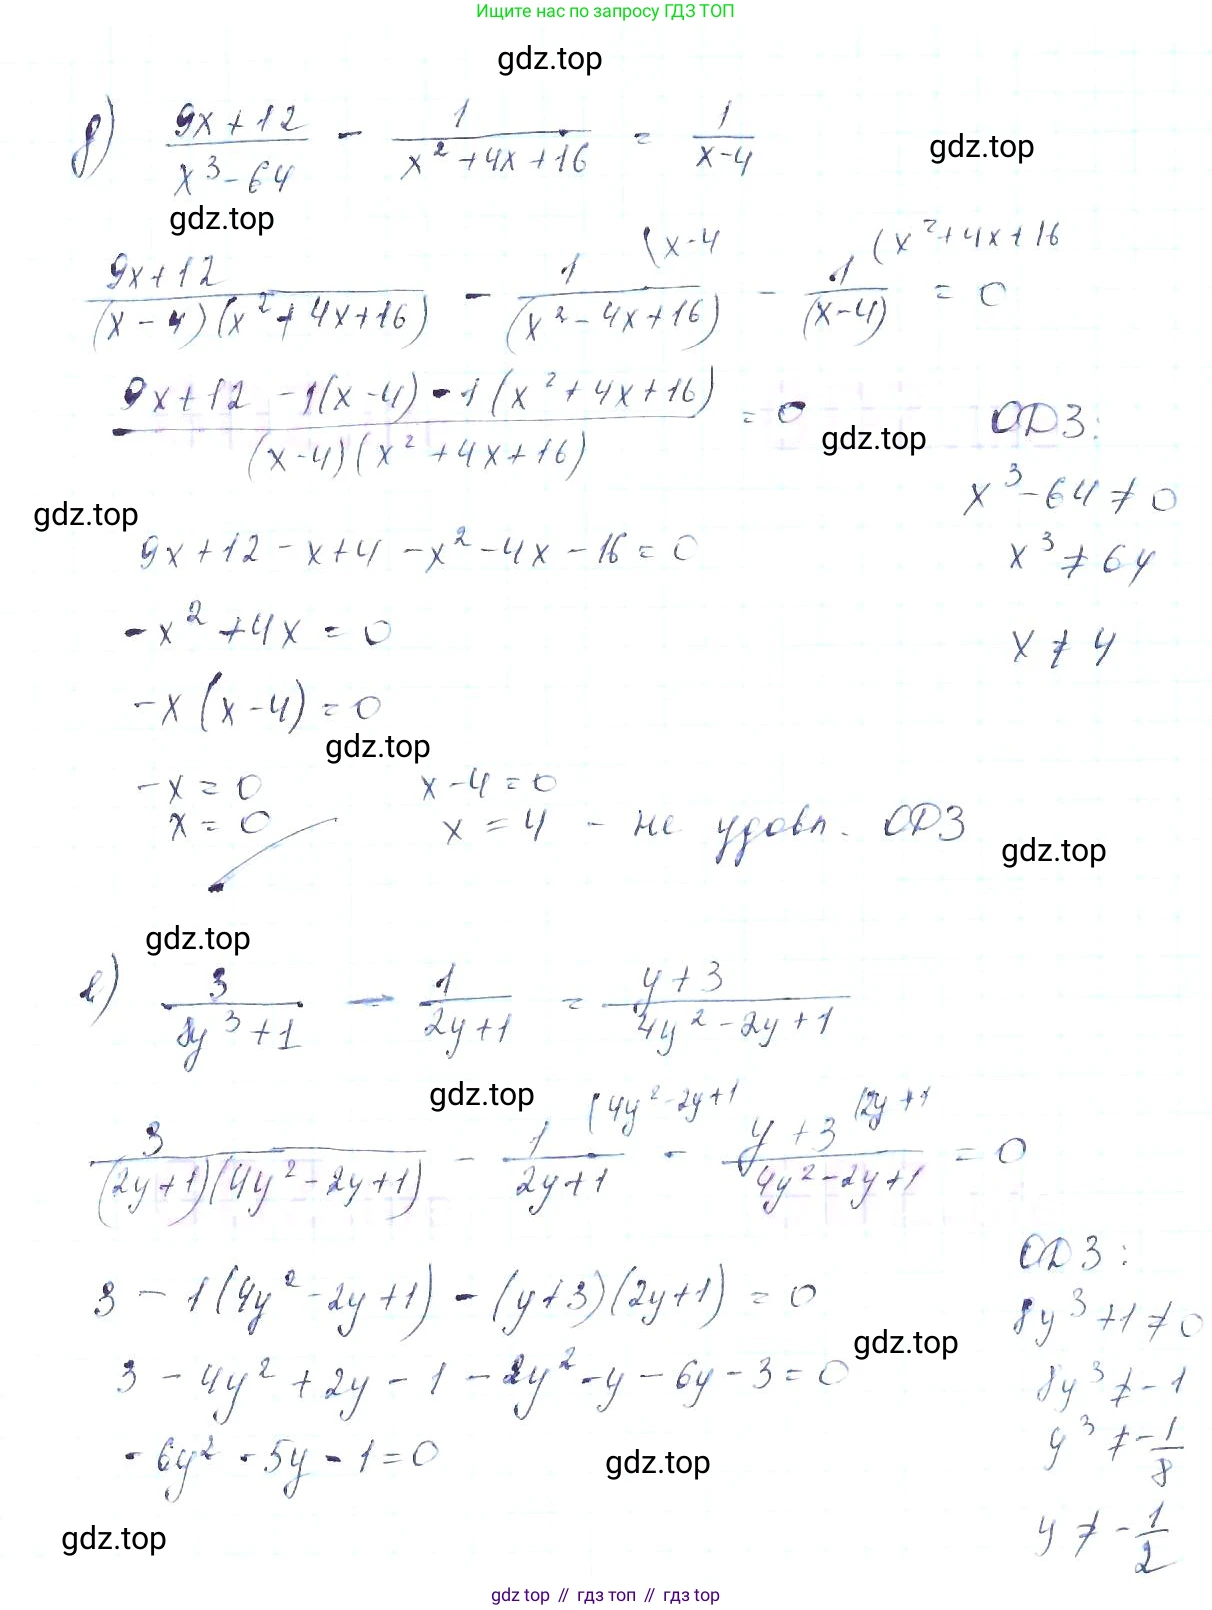 Ищите нас по запросу ГДЗ ТОП
gdz.top
д) (9x+12)/(x³-64) - 1/(x²+4x+16) = 1/(x-4)
gdz.top
gdz.top
(9x+12)/((x-4)(x²+4x+16)) - 1/(x²-4x+16) (x-4 - 1/(x-4) (x²+4x+16 = 0
(9x+12-1(x-4)-1(x²+4x+16))/((x-4)(x²+4x+16)) = 0
gdz.top
ОДЗ:
x³-64≠0
gdz.top
9x+12-x+4-x²-4x-16=0
x³≠64
-x²+4x=0
x≠4
-x(x-4)=0
gdz.top
-x=0 x-4=0
x=0 x=4 - не удовл. ОДЗ
gdz.top
gdz.top
е) 3/(8y³+1) - 1/(2y+1) = (y+3)/(4y²-2y+1)
gdz.top
3/((2y+1)(4y²-2y+1)) - 1/(2y+1) (4y²-2y+1 - (y+3)/(4y²-2y+1) (2y+1 = 0
ОДЗ:
3-1(4y²-2y+1)-(y+3)(2y+1)=0
8y³+1≠0
gdz.top
3-4y²+2y-1-2y²-y-6y-3=0
8y³≠-1
-6y²-5y-1=0
y³≠-1/8
gdz.top
gdz.top
y≠-1/2
gdz.top // гдз топ // гдз.top